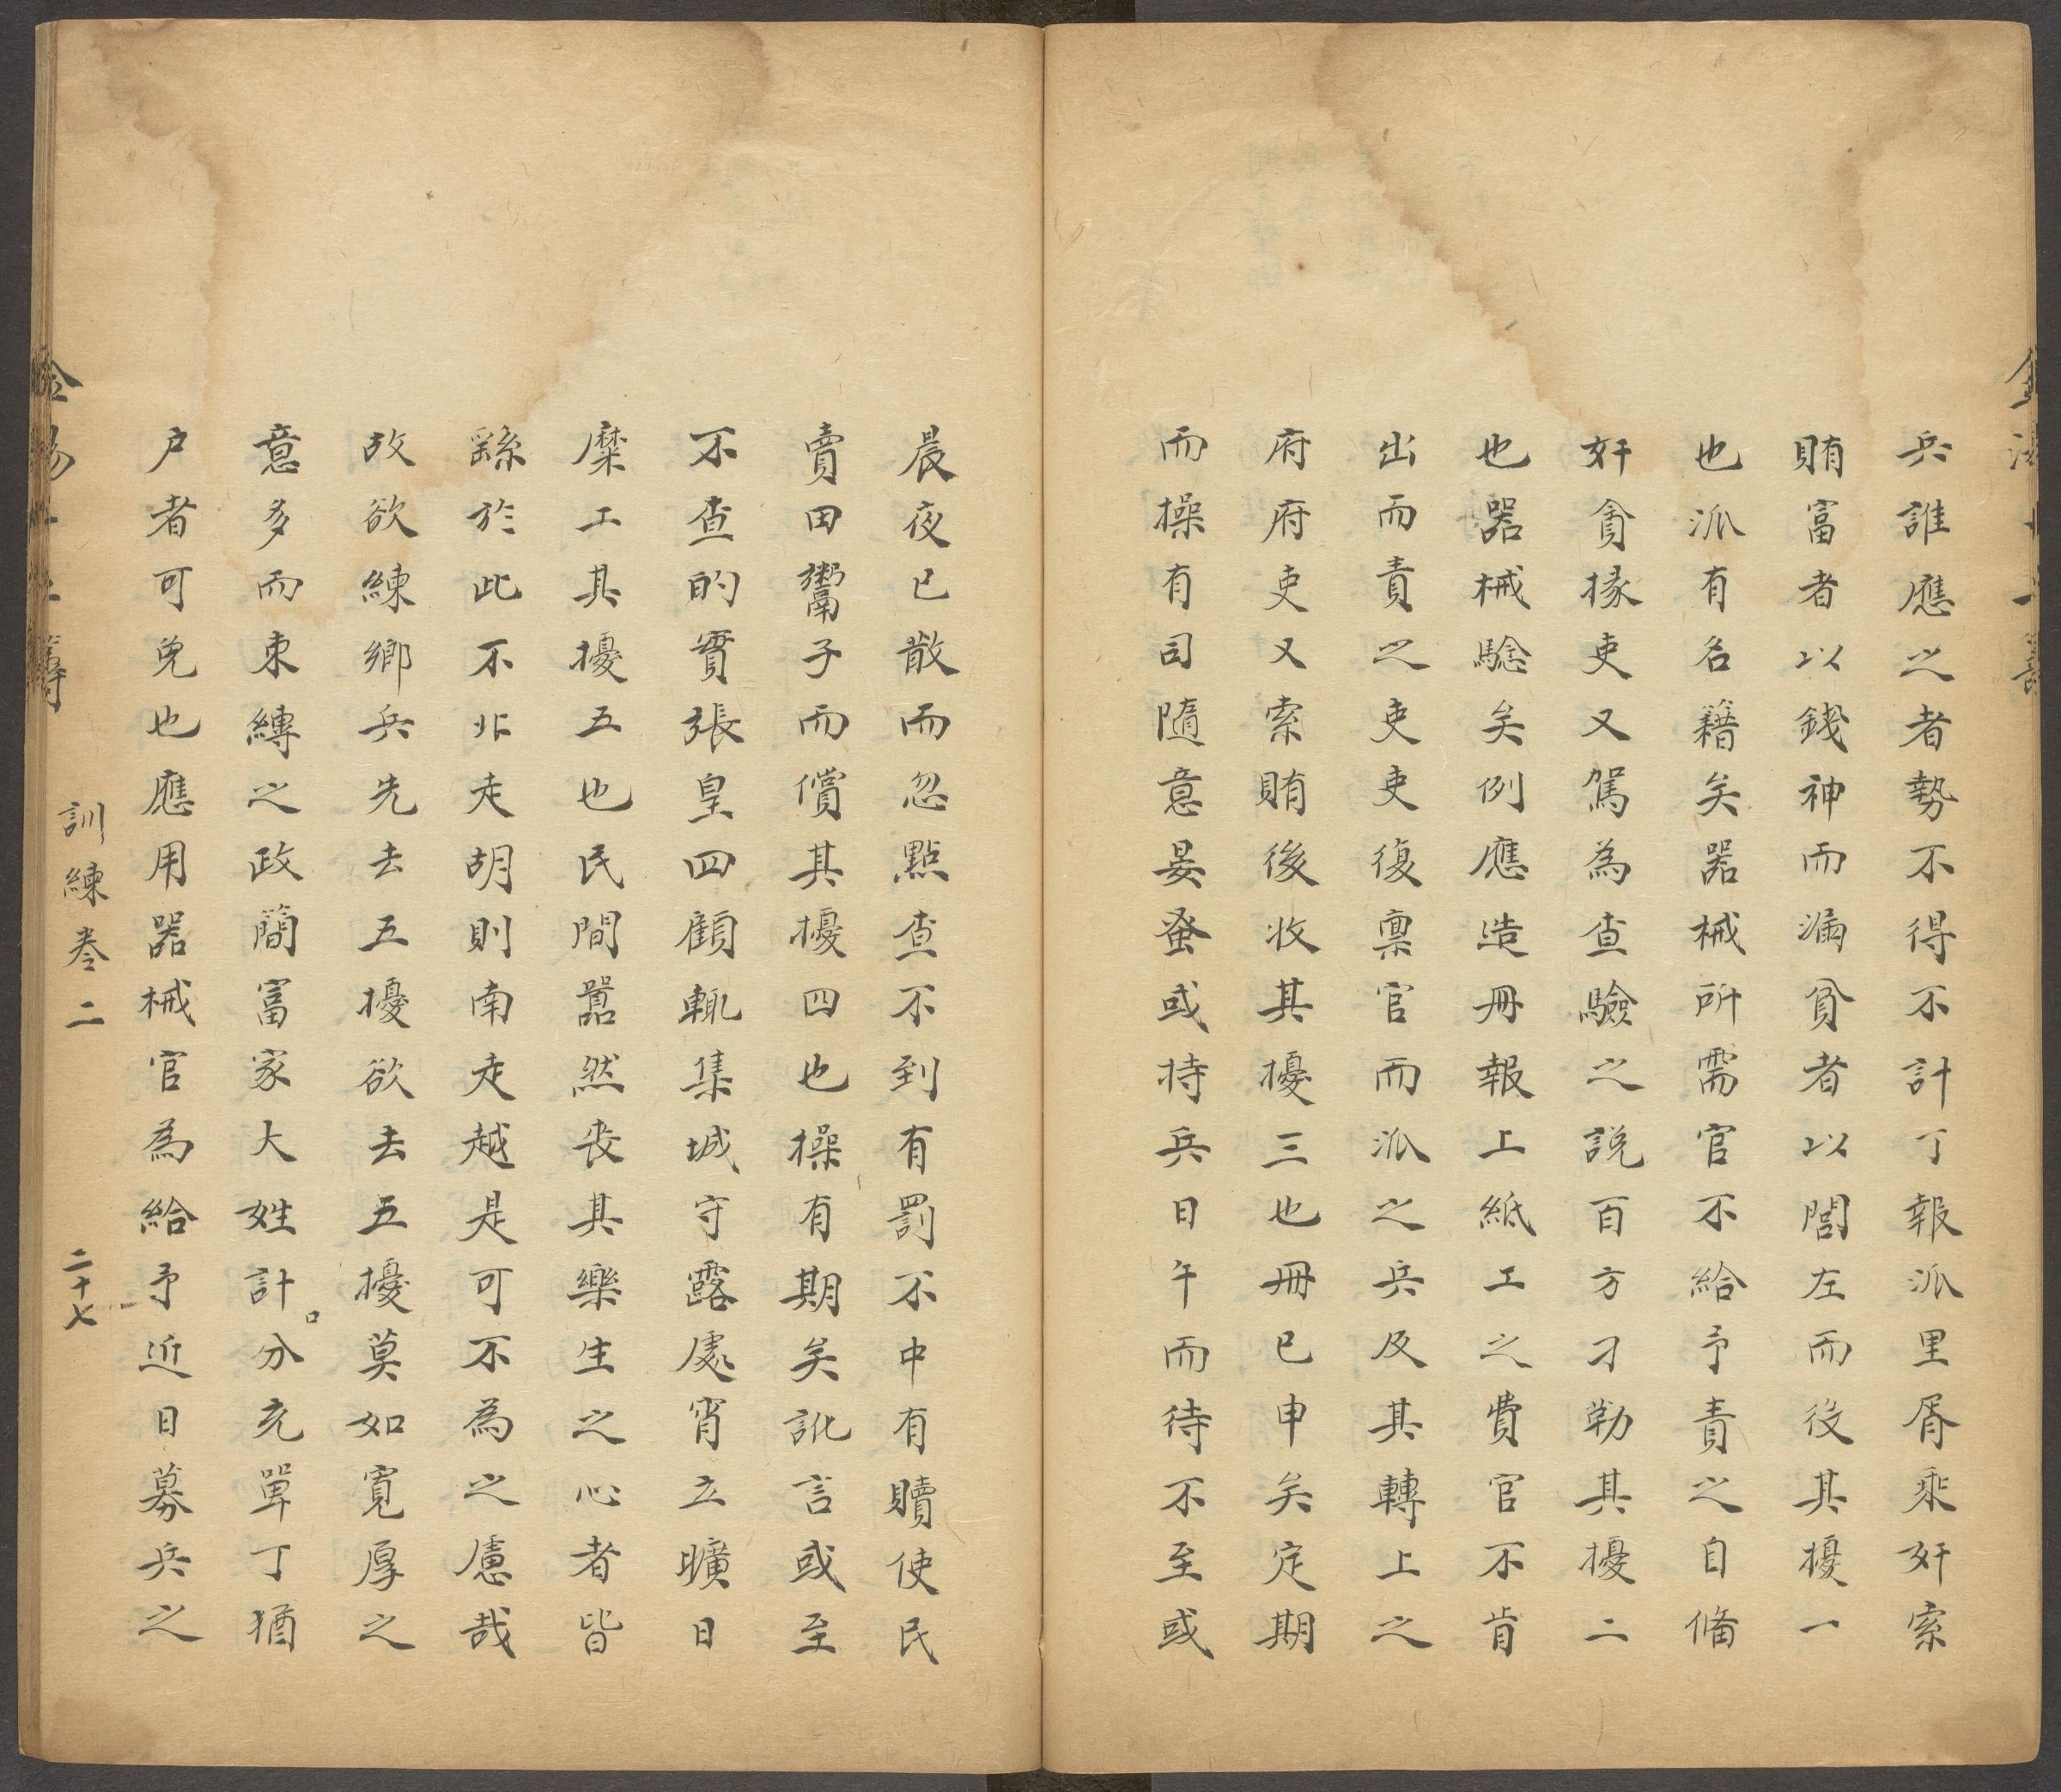 兵誰應之者勢不得不計丁報派里胥乘奸索
賄富者以錢神而漏貧者以閭左而役其擾一
也派有名籍矣器械所需官不給予責之自備
奸貪掾吏又駕為查驗之說百方刁勒其擾二
也器械驗矣例應造冊報上紙工之費官不肯
出而責之吏吏復稟官而派之兵及其轉上之
府府吏又索賄後收其擾三也冊已申矣定期
而操有司隨意晏蚤或持兵日午而待不至或
晨夜已散而忽點查不到有罰不中有贖使民
賣田鬻子而償其擾四也操有期矣訛言或至
不查的實張皇四顧輒集城守露處宵立曠日
糜工其擾五也民間囂然丧其樂生之心者皆
繇於此不北走胡則南走越是可不為之慮哉
故欲練鄉兵先去五擾欲去五擾莫如寬厚之
意多而束縛之政簡富家大姓計口分充單丁猶
戶者可免也應用器械官為給予近日募兵之
訓練卷二
二十七